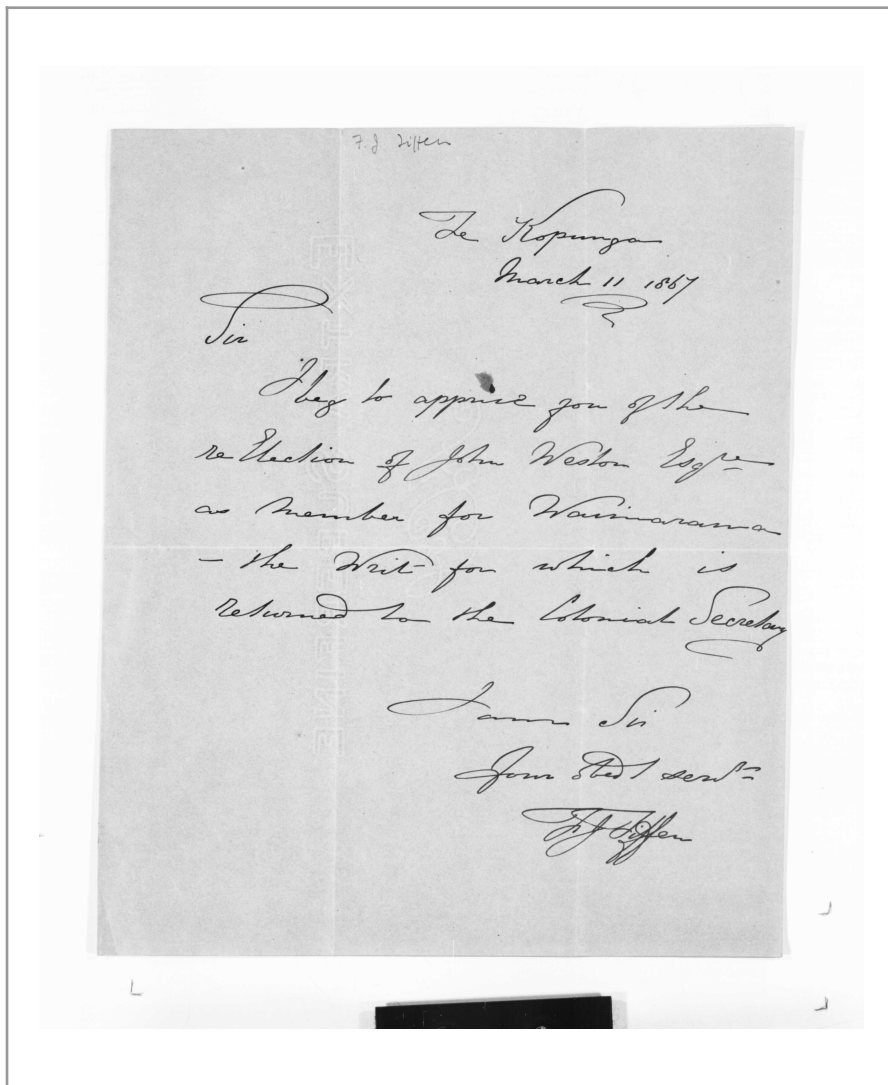 F. J. Tiffen
Te Kopunga
March 11 1867
Sir
I beg to apprise you of the
re Election of John Weston Esqre
as Member for Waimarama
– the Writ for which is
returned to the Colonial Secretary
I am Sir
Your Obedt servt
F J Tiffen